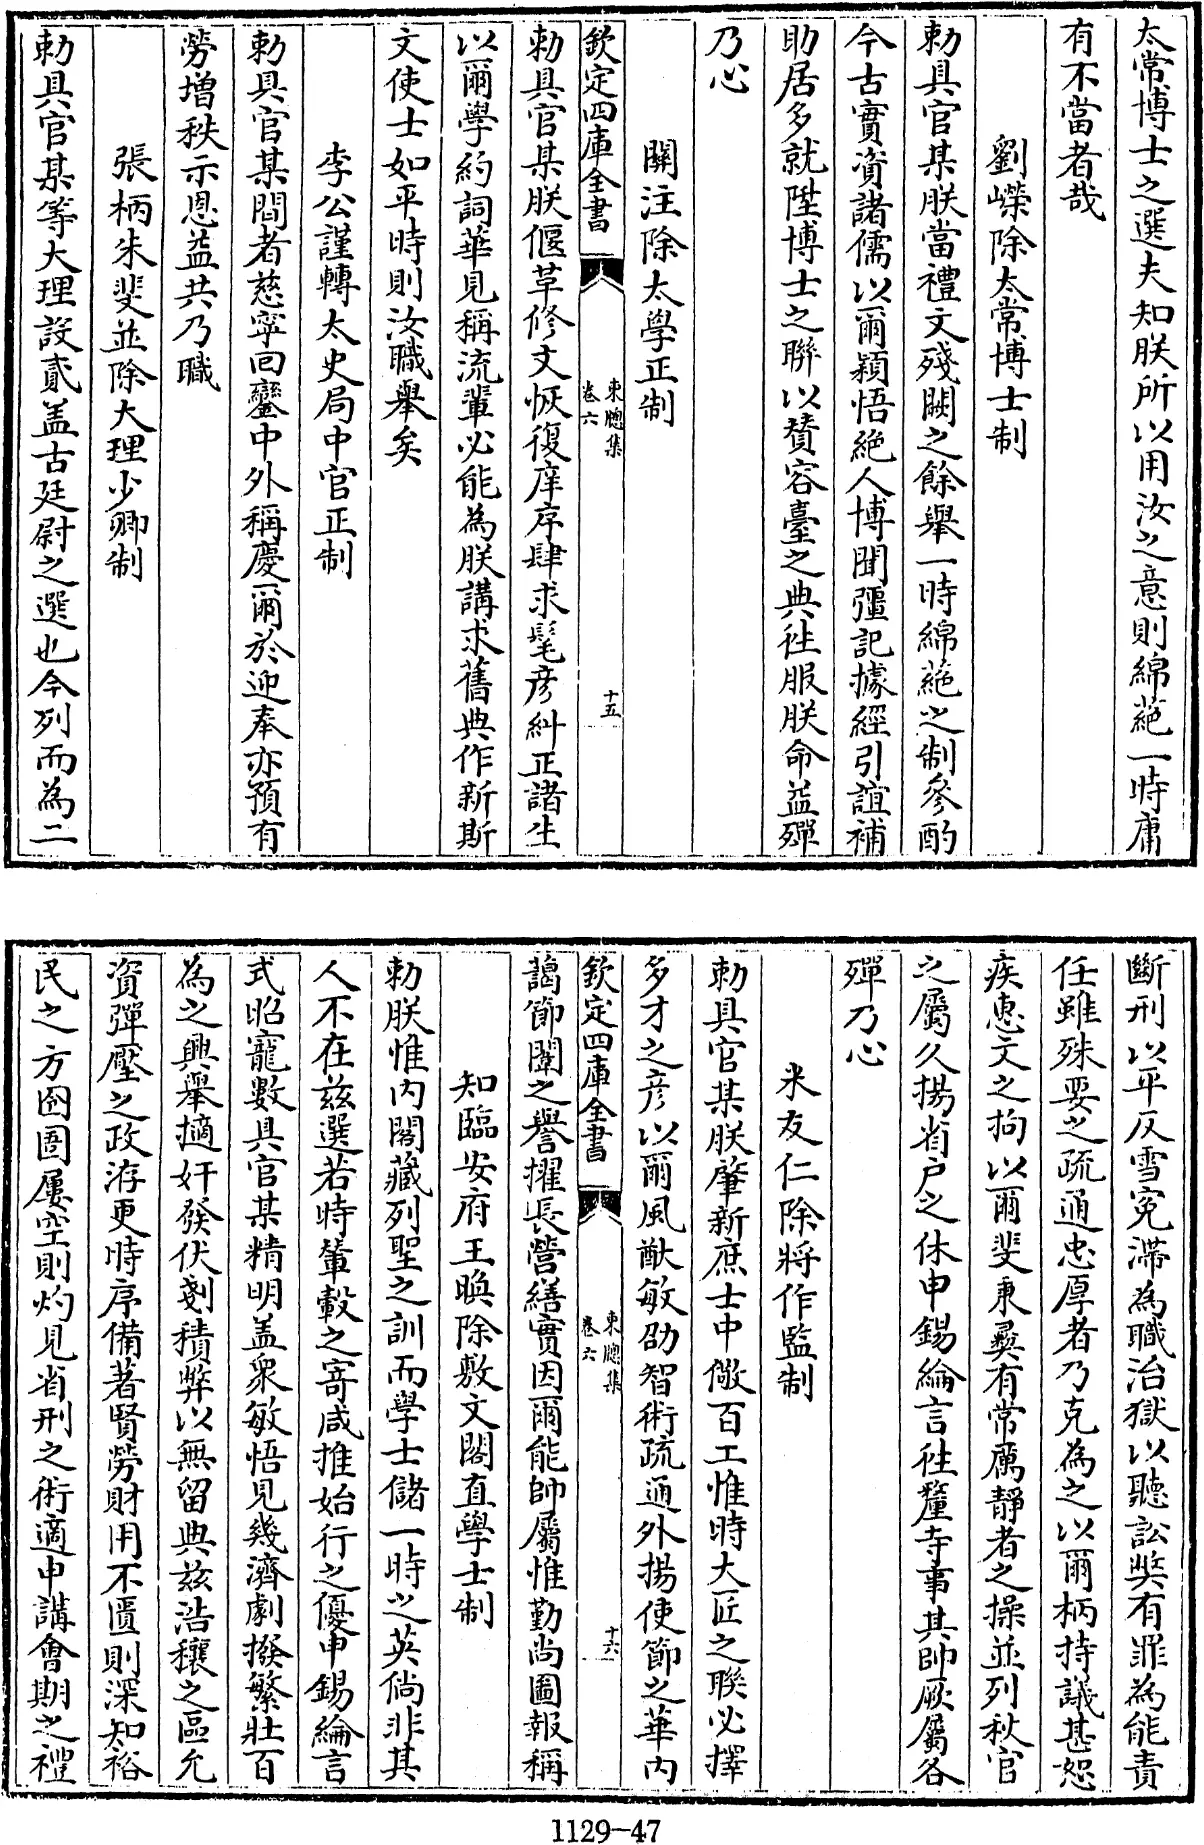 太常博士之選夫知朕所以用汝之意則綿蕝一時庸
有不當者哉
劉嶸除太常博士制
勅具官某朕當禮文殘闕之餘舉一時綿蕝之制參酌
今古實資諸儒以爾穎悟絶人博聞彊記據經引誼補
助居多就陞博士之聯以賛容臺之典徃服朕命益殫
乃心
關注除太學正制
欽定四庫全書
東牕集
卷六
十五
勅具官某朕偃革修文恢復庠序肆求髦彦糾正諸生
以爾學約詞華見稱流輩必能為朕講求舊典作新斯
文使士如平時則汝職舉矣
李公謹轉太史局中官正制
勅具官某間者慈寧回鑾中外稱慶爾於迎奉亦預有
勞增秩示恩益共乃職
張柄朱斐並除大理少卿制
勅具官某等大理設貳盖古廷尉之選也今列而為二
斷刑以平反雪寃滯為職治獄以聽訟獎有罪為能責
任雖殊要之疏通忠厚者乃克為之以爾柄持議甚恕
疾惠文之拘以爾斐秉彛有常厲靜者之操並列秋官
之屬久揚省户之休申錫綸言徃釐寺事其帥厥屬各
殫乃心
米友仁除將作監制
勅具官某朕肇新庶士中儆百工惟時大匠之聯必擇
多才之彦以爾風猷敏劭智術疏通外揚使節之華内
欽定四庫全書
東牕集
卷六
十六
藹郎闈之譽擢長營繕實因爾能帥屬惟勤尚圖報稱
知臨安府王㬇除敷文閣直學士制
勅朕惟内閣藏列聖之訓而學士儲一時之英倘非其
人不在兹選若時輦轂之寄咸推始行之優申錫綸言
式昭寵數具官某精明盖衆敏悟見幾濟劇撥繁壯百
為之興舉摘奸發伏剗積弊以無留典兹浩穰之區允
資彈壓之政洊更時序備著賢勞財用不匱則深知裕
民之方囹圄屢空則灼見省刑之術適申講會期之禮
1129-47